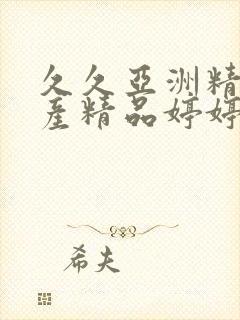 久久亞洲精
産精品婷婷
希夫